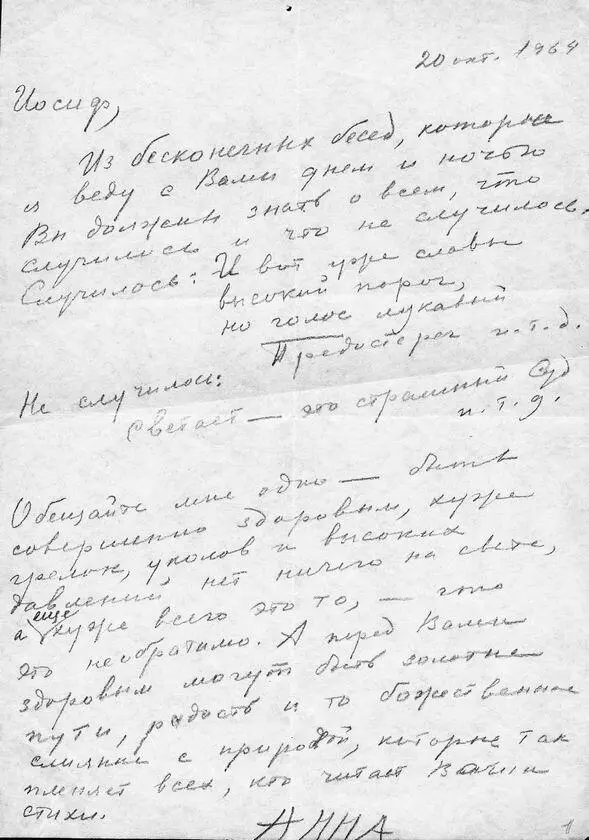 20 окт. 1964
Иосиф,
Из бесконечных бесед, которые
я веду с Вами днем и ночью
Вы должны знать о всем, что
случилось и что не случилось.
Случилось: И вот уже славы
высокий порог,
но голос лукавый
Предостерег и.т.д.
Не случилось:
Светает — это страшный Суд
и.т.д.
Обещайте мне одно — быть
совершенно здоровым, хуже
грелок, уколов и высоких
давлений, нет ничего на свете,
а еще хуже всего это то, — что
это необратимо. А перед Вами
здоровым могут быть золотые
пути, радость и то божественное
слияние с природой, которые так
пленяет всех, кто читает Ваши
стихи.
АННА
1